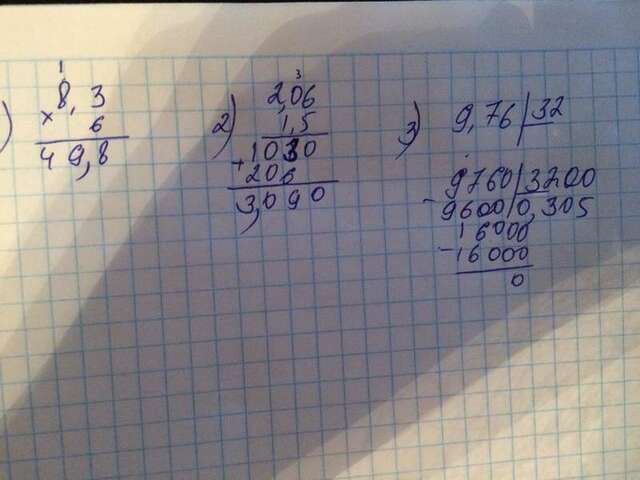 )
1
8,3
× 6
49,8
2)
3
2,06
1,5
1030
+ 206
3,090
3)
9,76 | 32
9760 | 3200
- 9600 | 0,305
16000
- 16000
0